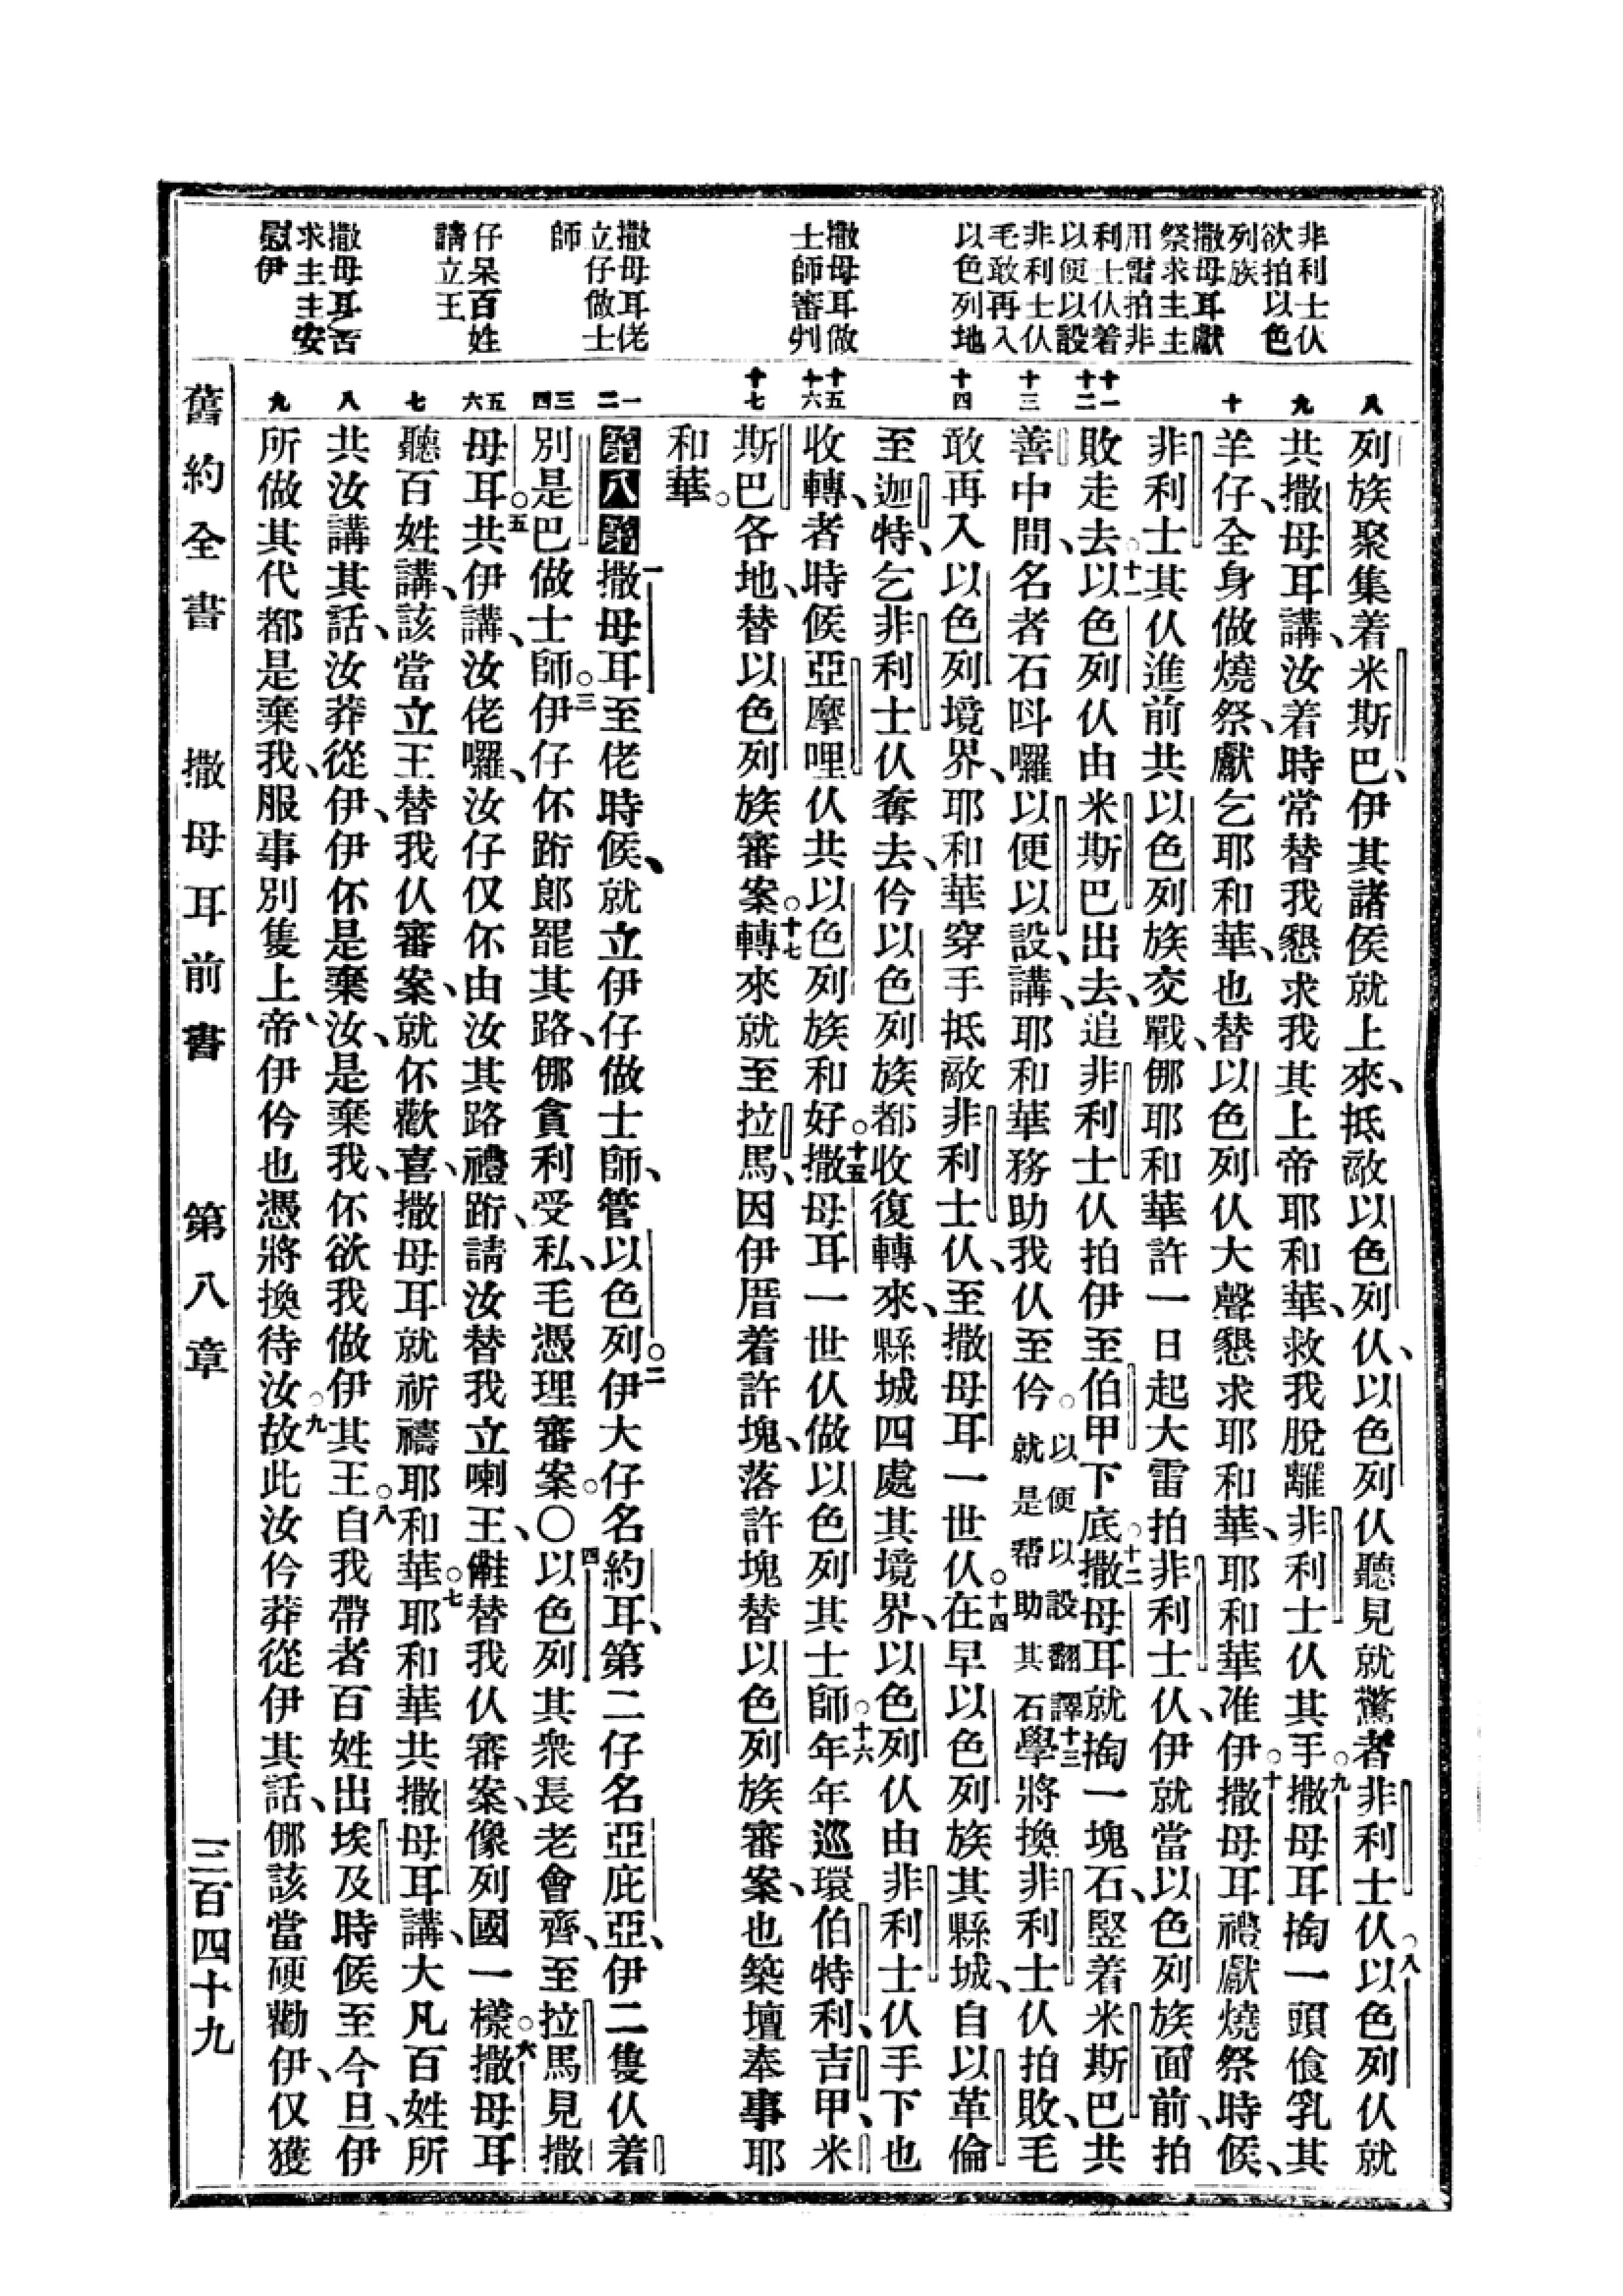 非利士仫
欲拍以色
列族
撒母耳獻
祭求主主
用雷拍非
利士仫着
以便以設
非利士仫
毛敢再入
以色列地
撒母耳做
士師審判
撒母耳佬
立仔做士
師
仔呆百姓
請立王
撒母耳苦
求主主安
慰伊
八
九
十
十一
十二
十三
十四
十五
十六
十七
一
二
三
四
五
六
七
八
九
列族聚集着米斯巴、伊其諸侯就上來、抵敵以色列仫、以色列仫聽見就驚者非利士仫○八以色列仫就
共撒母耳講、汝着時常替我懇求我其上帝耶和華、救我脫離非利士仫其手○九撒母耳掏一頭食乳其
羊仔、全身做燒祭、獻乞耶和華、也替以色列仫大聲懇求耶和華、耶和華准伊○十撒母耳禮獻燒祭時候、
非利士其仫進前共以色列族交戰、㑚耶和華許一日起大雷拍非利士仫、伊就當以色列族面前、拍
敗走去○十一以色列仫由米斯巴出去、追非利士仫拍伊至伯甲下底○十二撒母耳就掏一塊石、竪着米斯巴共
善中間、名者石叫囉以便以設、講、耶和華務助我仫至仱○以便以設翻譯就是帮助其石十三學將換非利士仫拍敗、毛
敢再入以色列境界、耶和華穿手抵敵非利士仫、至撒母耳一世仫○十四在早以色列族其縣城、自以革倫
至迦特、乞非利士仫奪去、仱以色列族都收復轉來、縣城四處其境界、以色列仫由非利士仫手下也
收轉、者時候亞摩哩仫共以色列族和好○十五撒母耳一世仫做以色列其士師○十六年年巡環伯特利、吉甲、米
斯巴各地、替以色列族審案○十七轉來就至拉馬、因伊厝着許塊、落許塊替以色列族審案、也築壇奉事耶
和華○
第八章一撒母耳至佬時候、就立伊仔做士師、管以色列○二伊大仔名約耳、第二仔名亞庇亞、伊二隻仫着
別是巴做士師○三伊仔伓跲郎罷其路、㑚貪利受私、毛憑理審案○〇四以色列其衆長老會齊、至拉馬見撒
母耳○五共伊講、汝佬囉、汝仔仅伓由汝其路禮跲、請汝替我立喇王、替我仫審案、像列國一樣○六撒母耳
聽百姓講、該當立王替我仫審案、就伓歡喜、撒母耳就祈禱耶和華○七耶和華共撒母耳講、大凡百姓所
共汝講其話、汝莽從伊、伊伓是棄汝、是棄我、伓欲我做伊其王○八自我帶者百姓出埃及時候至今旦、伊
所做其代都是棄我、服事別隻上帝、伊仱也憑將換待汝○九故此汝仱莽從伊其話、㑚該當硬勸伊、仅獲
舊約全書　撒母耳前書　第八章　三百四十九